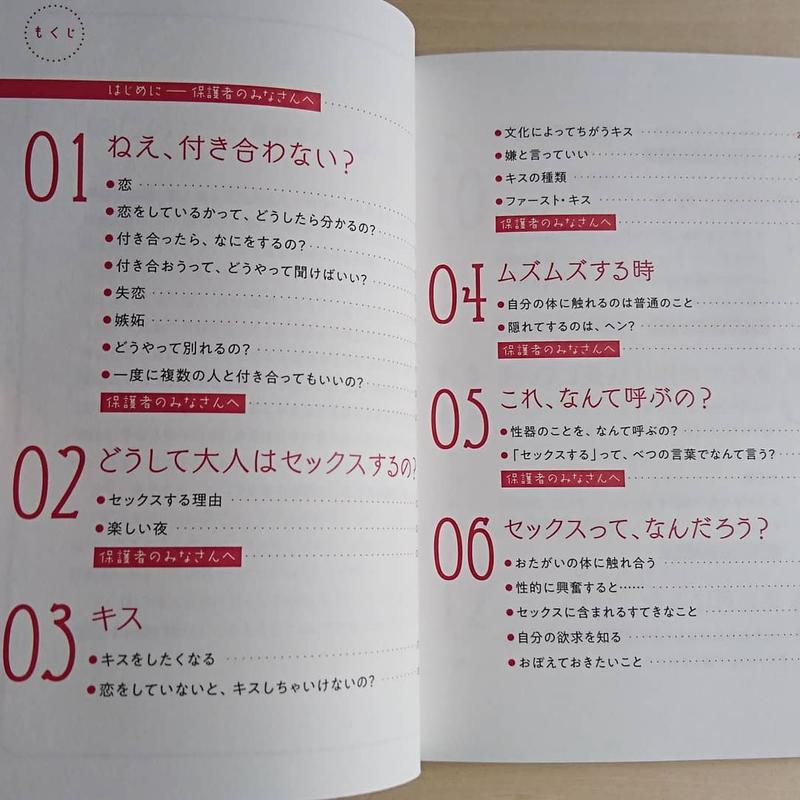 もくじ
はじめに — 保護者のみなさんへ
01 ねえ、付き合わない?
●恋
●恋をしているかって、どうしたら分かるの?
●付き合ったら、なにをするの?
●付き合おうって、どうやって聞けばいい?
●失恋
●嫉妬
●どうやって別れるの?
●一度に複数の人と付き合ってもいいの?
保護者のみなさんへ
02 どうして大人はセックスするの?
●セックスする理由
●楽しい夜
保護者のみなさんへ
03 キス
●キスをしたくなる
●恋をしていないと、キスしちゃいけないの?
●文化によってちがうキス
●嫌と言っていい
●キスの種類
●ファースト・キス
保護者のみなさんへ
04 ムズムズする時
●自分の体に触れるのは普通のこと
●隠れてするのは、ヘン?
保護者のみなさんへ
05 これ、なんて呼ぶの?
●性器のことを、なんて呼ぶの?
●「セックスする」って、べつの言葉でなんて言う?
保護者のみなさんへ
06 セックスって、なんだろう?
●おたがいの体に触れ合う
●性的に興奮すると……
●セックスに含まれるすてきなこと
●自分の欲求を知る
●おぼえておきたいこと